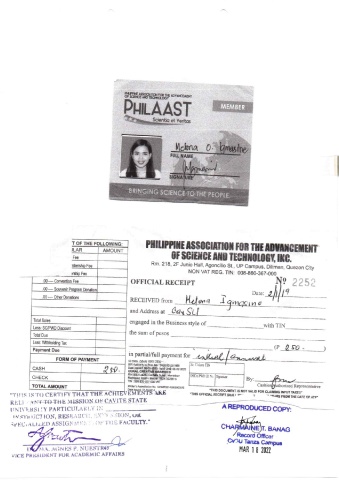 PHILIPPINE ASSOCIATION FOR THE ADVANCEMENT
OF SCIENCE AND TECHNOLOGY
PHILAAST
Scientia et Veritas
MEMBER
FULL NAME
SIGNATURE
BRINGING SCIENCE TO THE PEOPLE
T OF THE FOLLOWING:
AMOUNT
Fee
Membership Fee
Convention Fee
Other Donations
Total Sales
Less: SC/PWD Discount
Total Due
Less: Withholding Tax
Payment Due
FORM OF PAYMENT
CASH 250.-
CHECK
TOTAL AMOUNT
PHILIPPINE ASSOCIATION FOR THE ADVANCEMENT
OF SCIENCE AND TECHNOLOGY, INC.
Rm. 218, 2F Junio Hall, Agoncillo St., UP Campus, Diliman, Quezon City
NON VAT REG. TIN 006-860-367-000
OFFICIAL RECEIPT
Nº 2252
Date: 2/1/19
RECEIVED from Melona Igmasine
and Address at
engaged in the Business style of with TIN
the sum of pesos
(P 250.-)
in partial/full payment for
By:
Cashier/Authorized Representative
"THIS DOCUMENT IS NOT VALID FOR CLAIMING INPUT TAXES"
"THIS IS TO CERTIFY THAT THE ACHIEVEMENTS ARE
RELEVANT TO THE MISSION OF CAVITE STATE
UNIVERSITY PARTICULARLY IN
INSTRUCTION, RESEARCH, EXTENSION, OR
SPECIALIZED ASSIGNMENT OF THE FACULTY."
AGNES P. NUESTRO
VICE PRESIDENT FOR ACADEMIC AFFAIRS
A REPRODUCED COPY:
CHARMAINE T. BANAG
Record Officer
CvSU Tanza Campus
MAR 18 2022